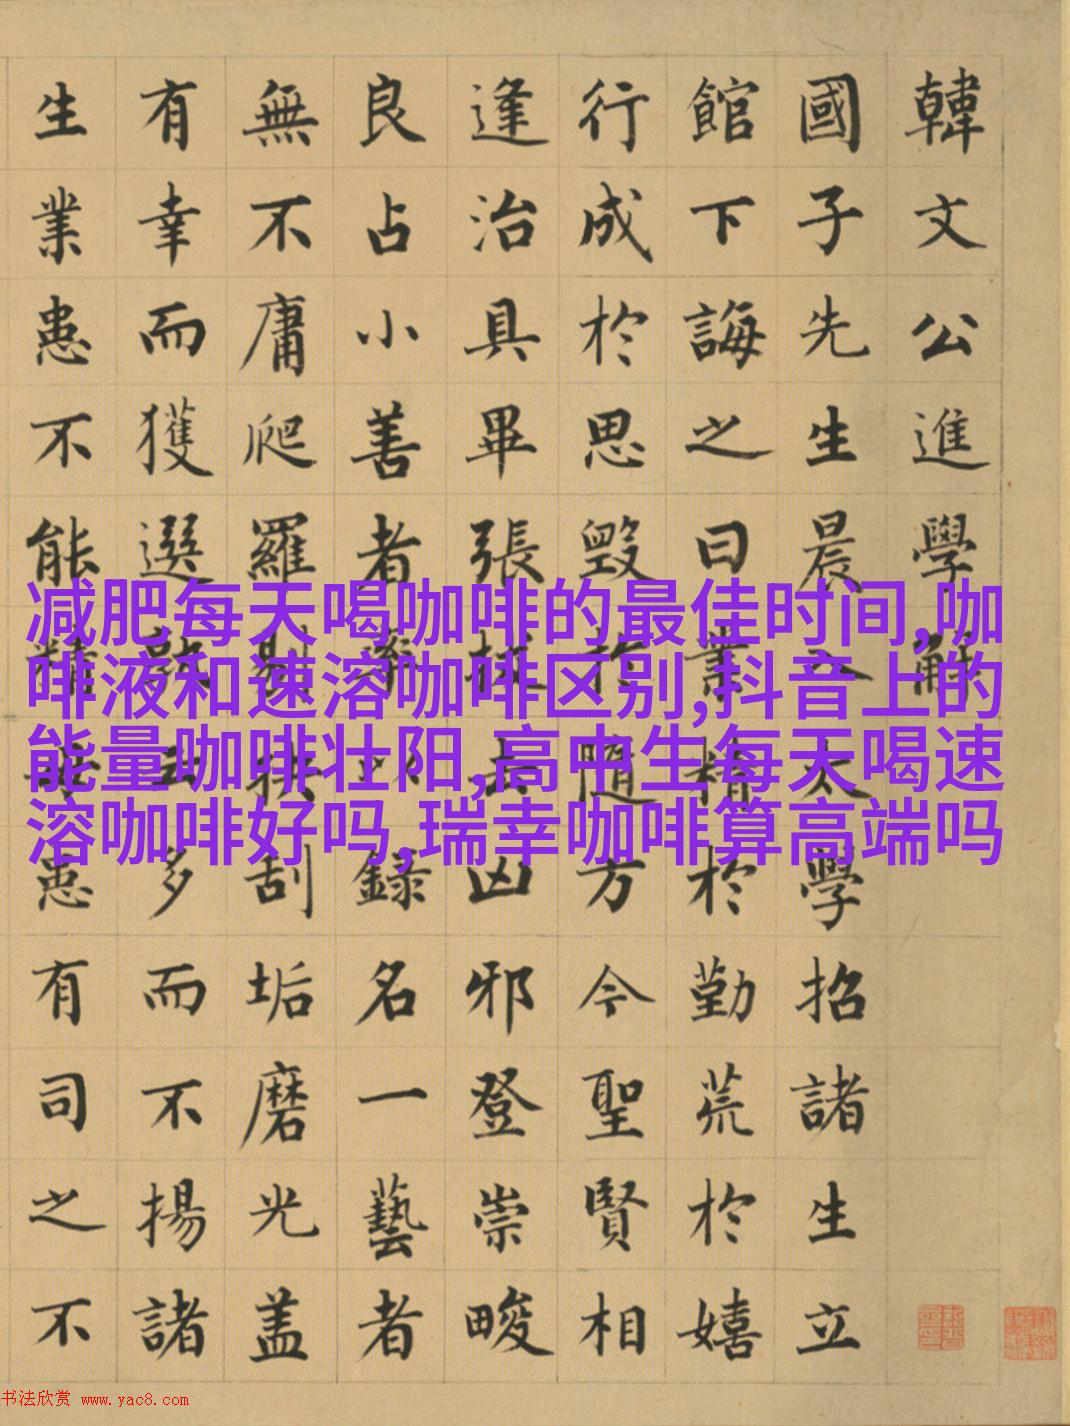 韓文公進學解
國子先生晨入太學招諸生立
館下誨之曰業精於勤荒於嬉
行成於思毀於隨方今聖賢相
逢治具畢張拔去凶邪登崇畯
良占小善者率以録名一藝者
無不庸爬羅剔抉刮垢磨光盖
有幸而獲選孰云多而不揚諸
生業患不能精無患有司之不
减肥每天喝咖啡的最佳时间,咖
啡液和速溶咖啡区别,抖音上的
能量咖啡壮阳,高中生每天喝速
溶咖啡好吗,瑞幸咖啡算高端吗
书法欣赏 www.yac8.com